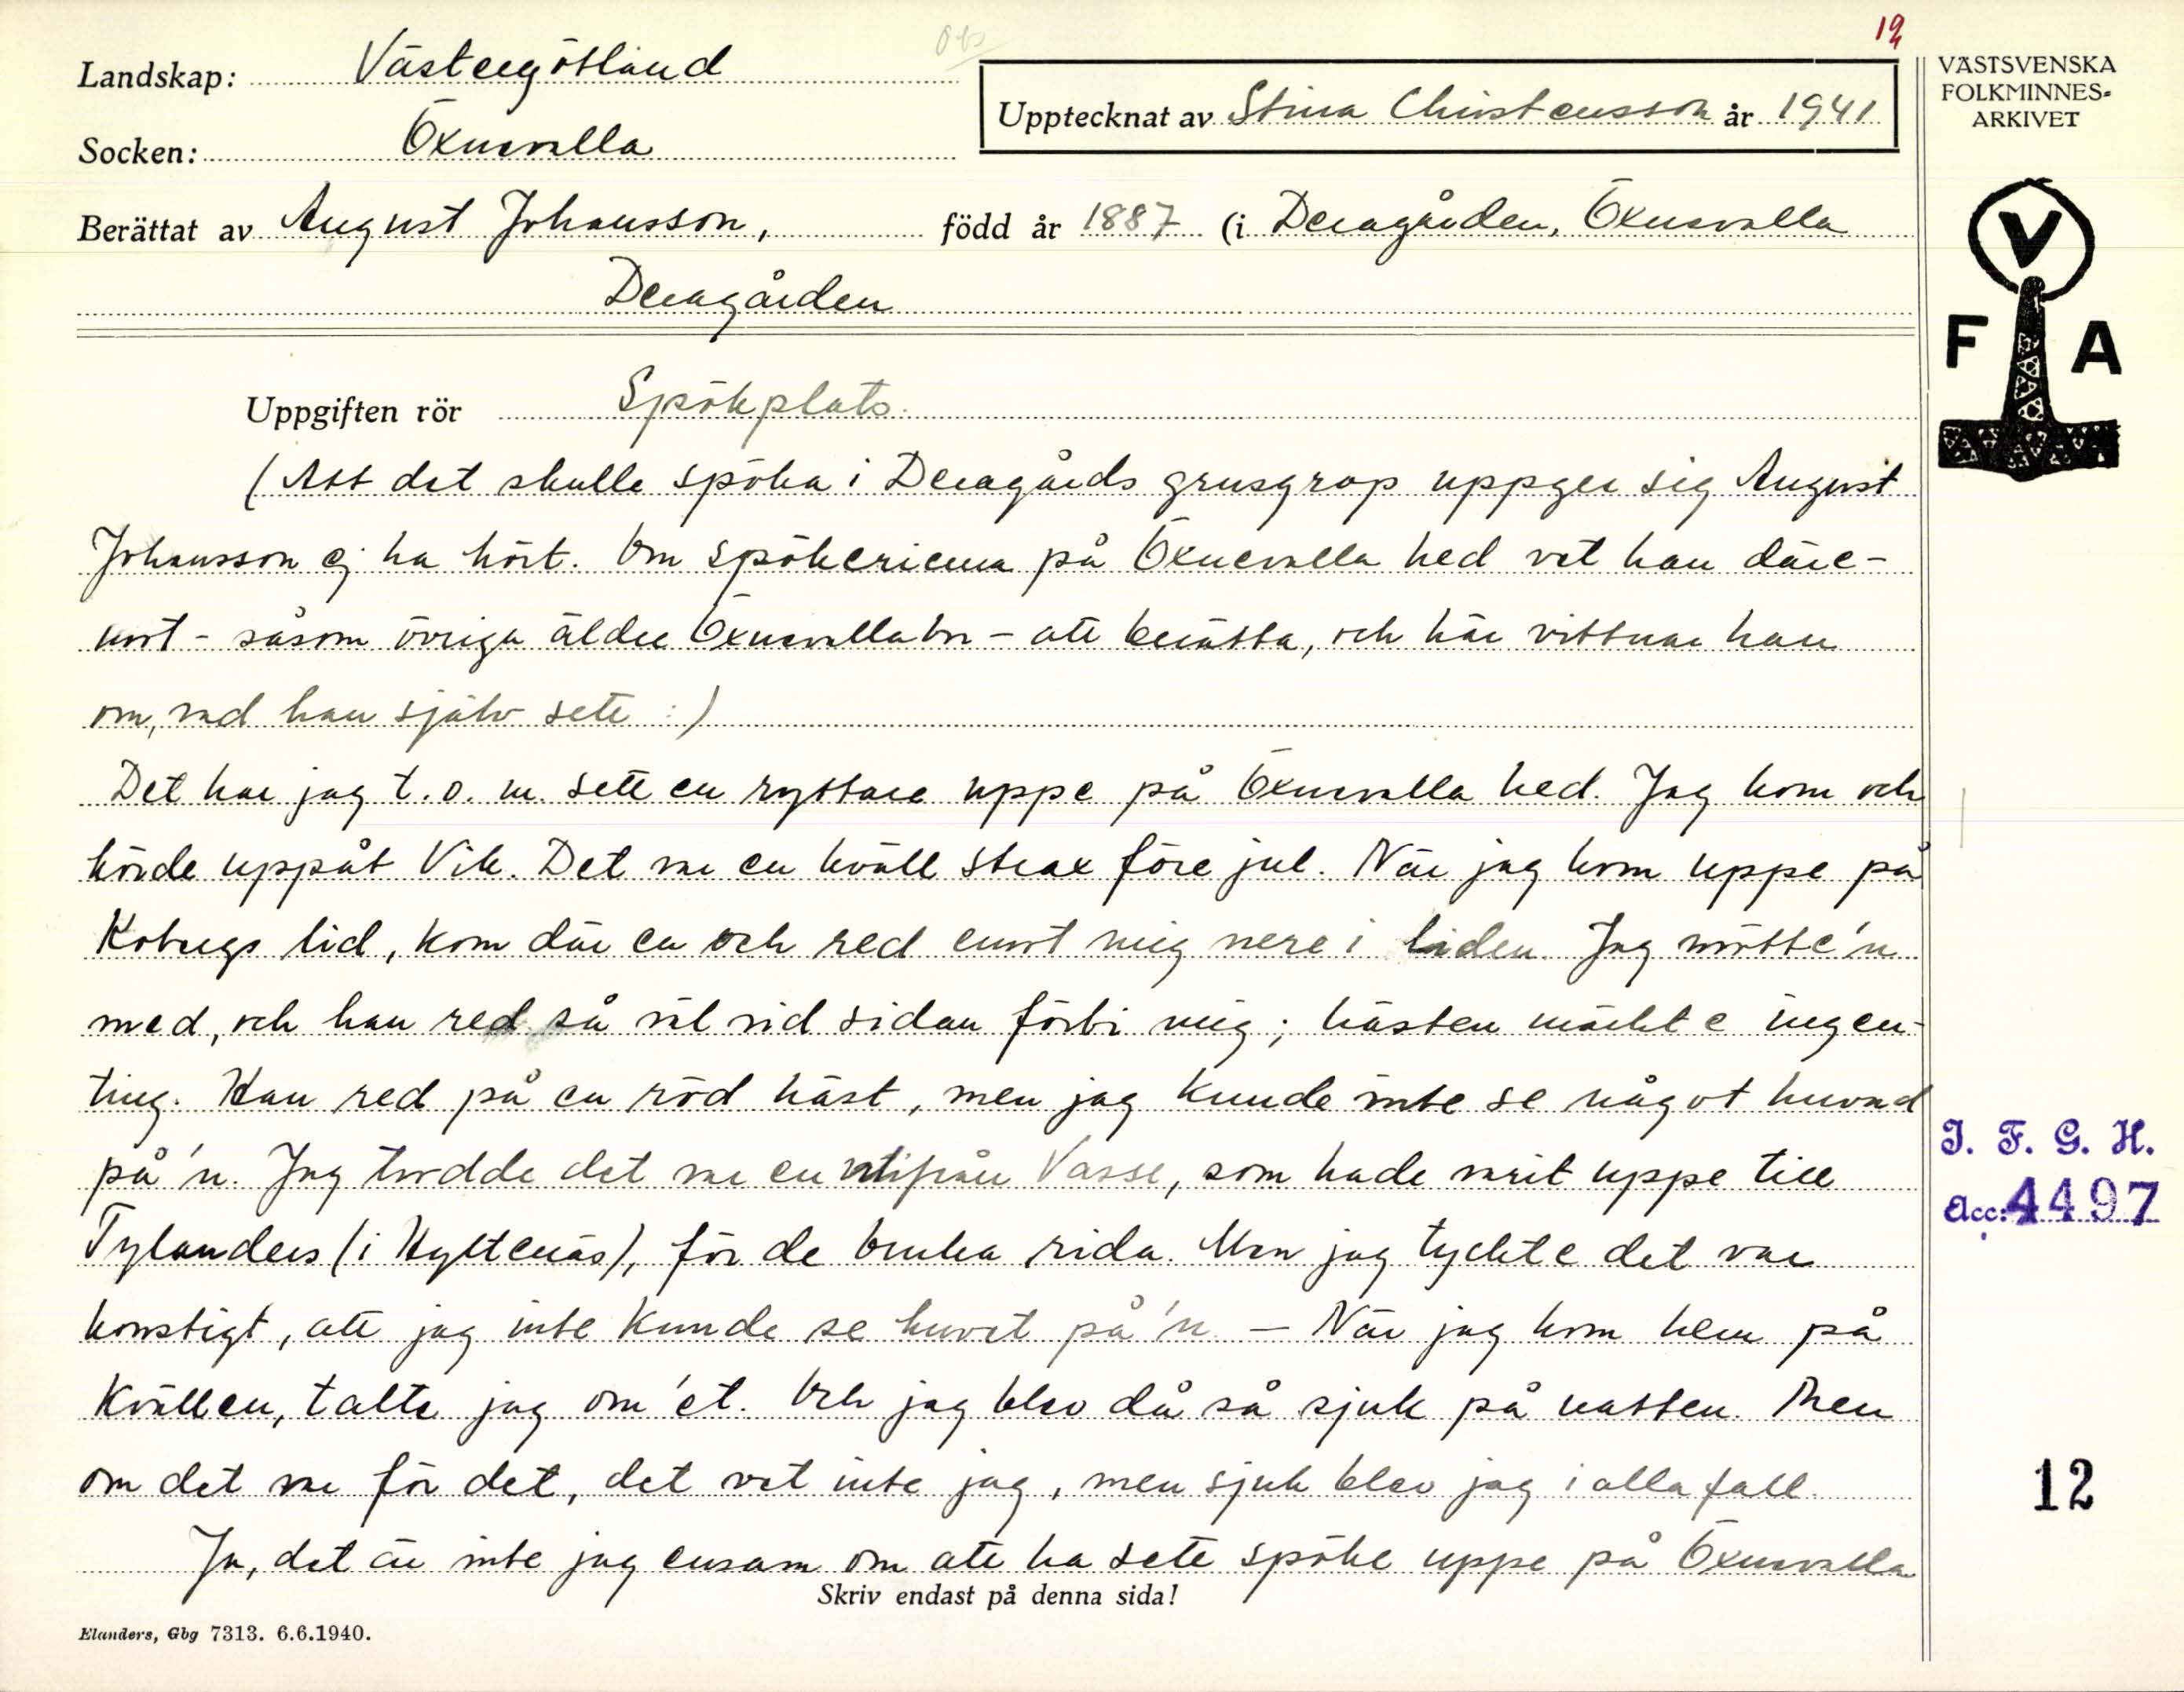 Obs
12
Landskap: Västergötland
Socken: Öxnevalla
Upptecknat av Stina Christensson år 1941
Berättat av August Johansson, född år 1887 (i Deragården, Öxnevalla
Deragården
VÄSTSVENSKA
FOLKMINNES-
ARKIVET
V
F A
Uppgiften rör Spökplats.
(Att det skulle spöka i Deragårds grusgrop uppger sig August
Johansson ej ha hört. Om spökerierna på Öxnevalla hed vet han däre-
mot - såsom övriga äldre Öxnevallabor - att berätta, och här vittnar han
om, vad han själv sett :)
Det har jag t.o.m. sett en ryttare uppe på Öxnevalla hed. Jag kom och
körde uppåt Vik. Det var en kväll strax före jul. När jag kom uppe på
Kobergs lid, kom där en och red emot mig nere i liden. Jag mötte'n
med, och han red så väl vid sidan förbi mig; hästen märkte ingen-
ting. Han red på en röd häst, men jag kunde inte se något huvud
på'n. Jag trodde det var en utifrån Vasse, som hade varit uppe till
Tylanders (i Hyltenäs), för de bruka rida. Men jag tyckte det var
konstigt, att jag inte kunde se huvet på'n. - När jag kom hem på
kvällen, talte jag om'et. Och jag blev då så sjuk på natten. Men
om det var för det, det vet inte jag, men sjuk blev jag i alla fall.
Ja, det är inte jag ensam om att ha sett spöke uppe på Öxnevalla
I. F. G. H.
Acc: 4497
12
Skriv endast på denna sida!
Elanders, Gbg 7313. 6.6.1940.